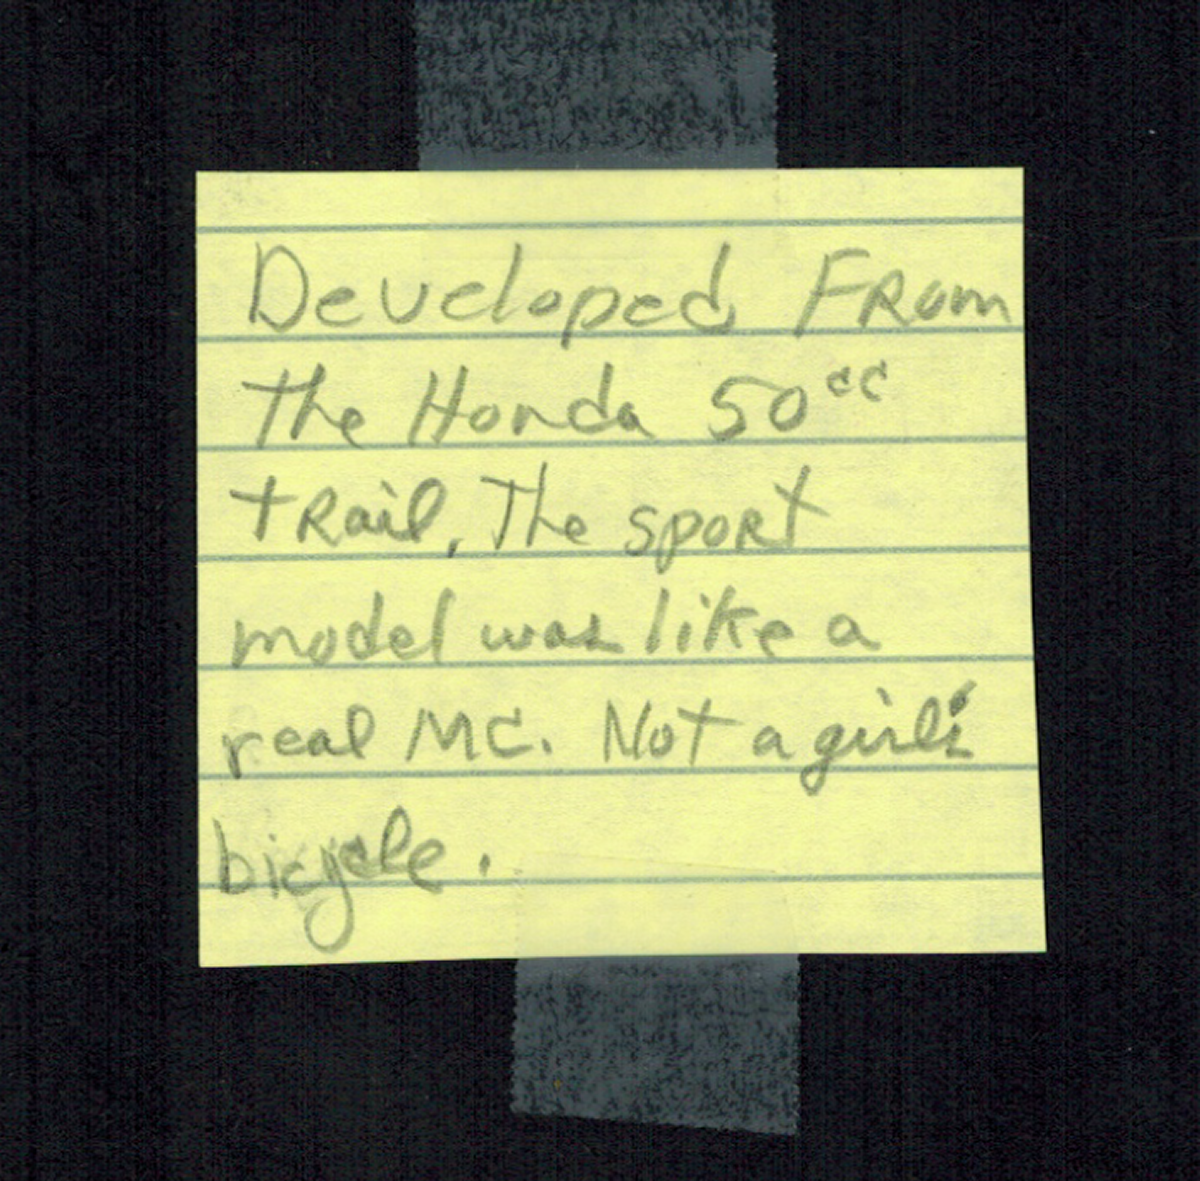 Developed From
the Honda 50cc
trail, The sport
model was like a
real MC. Not a girl's
bicycle.